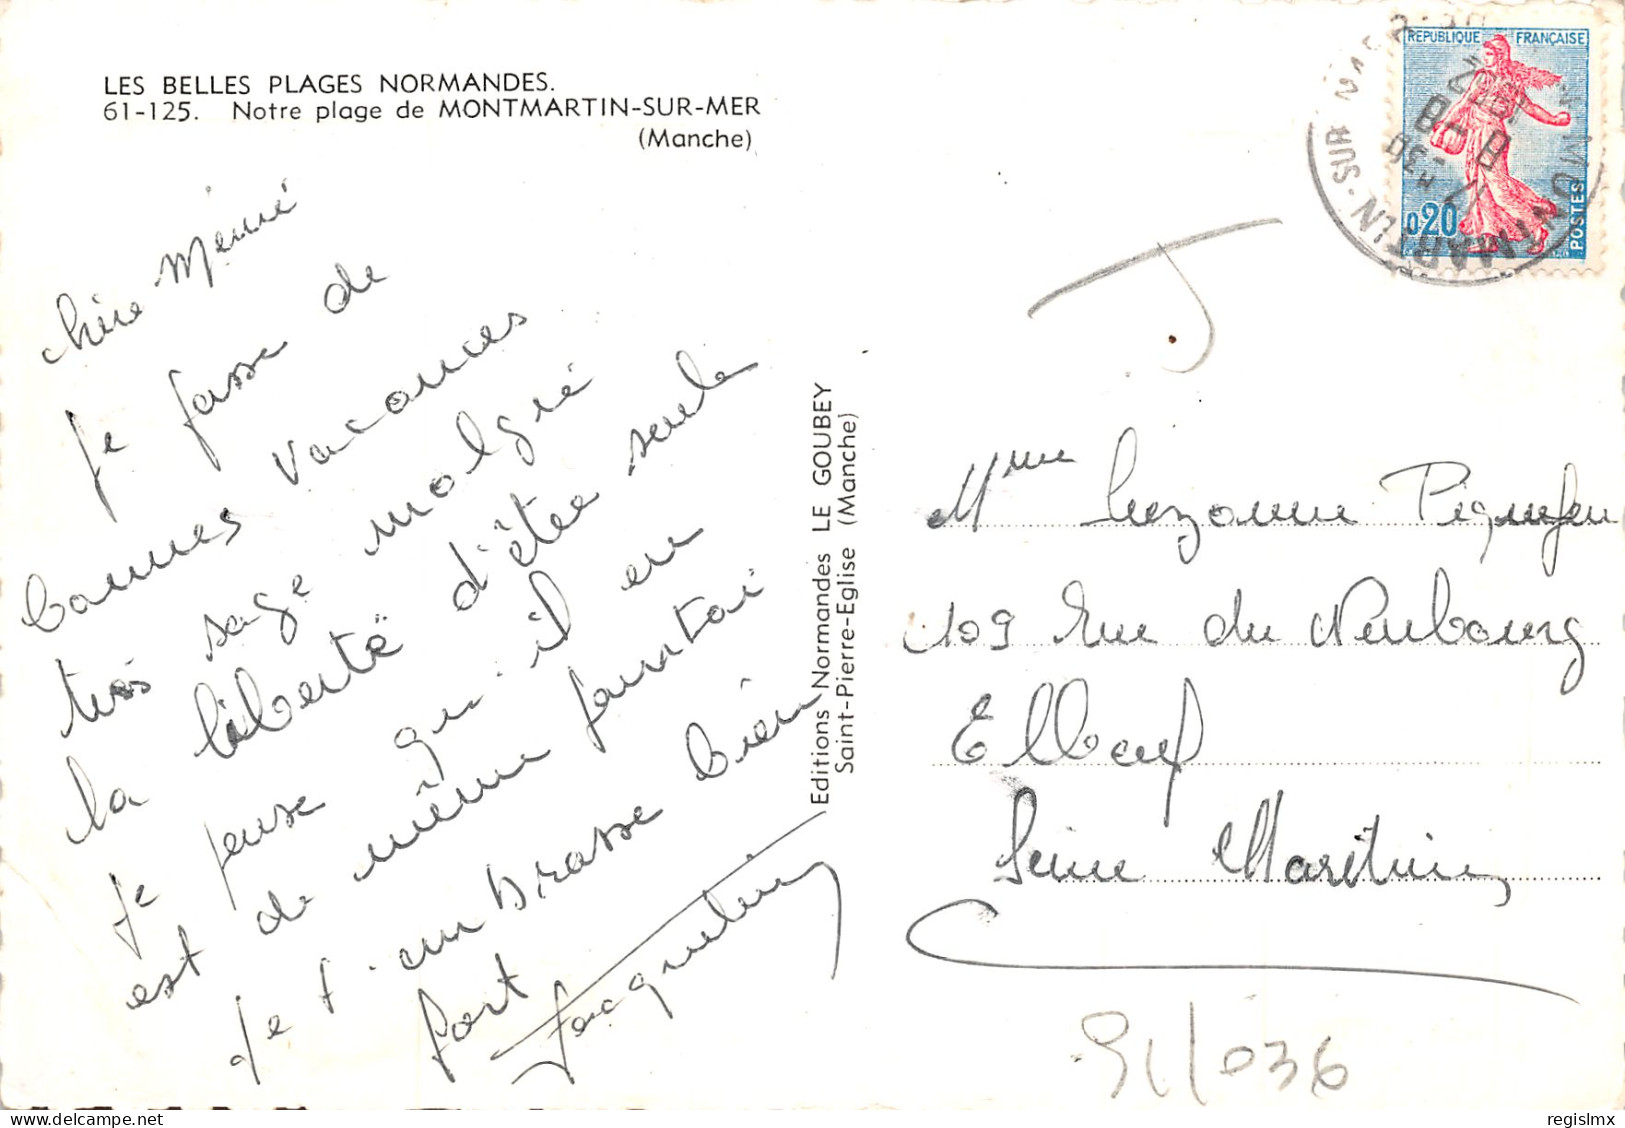 LES BELLES PLAGES NORMANDES.
61-125. Notre plage de MONTMARTIN-SUR-MER
(Manche)
chère Mémé
Je passe de
bonnes vacances
très sage malgré
la liberté d'être seule
Je pense qu'il en
est de même pour toi
Je t'embrasse bien
fort
Jacqueline
Editions Normandes LE GOUBEY
Saint-Pierre-Eglise (Manche)
REPUBLIQUE FRANÇAISE
0,20
POSTES
MONTMARTIN-SUR-MER
17 H 30
8-8
Mme Suzanne
109 Rue du Neubourg
Elbeuf
Seine Maritime
036
regislmx
delcampe.net